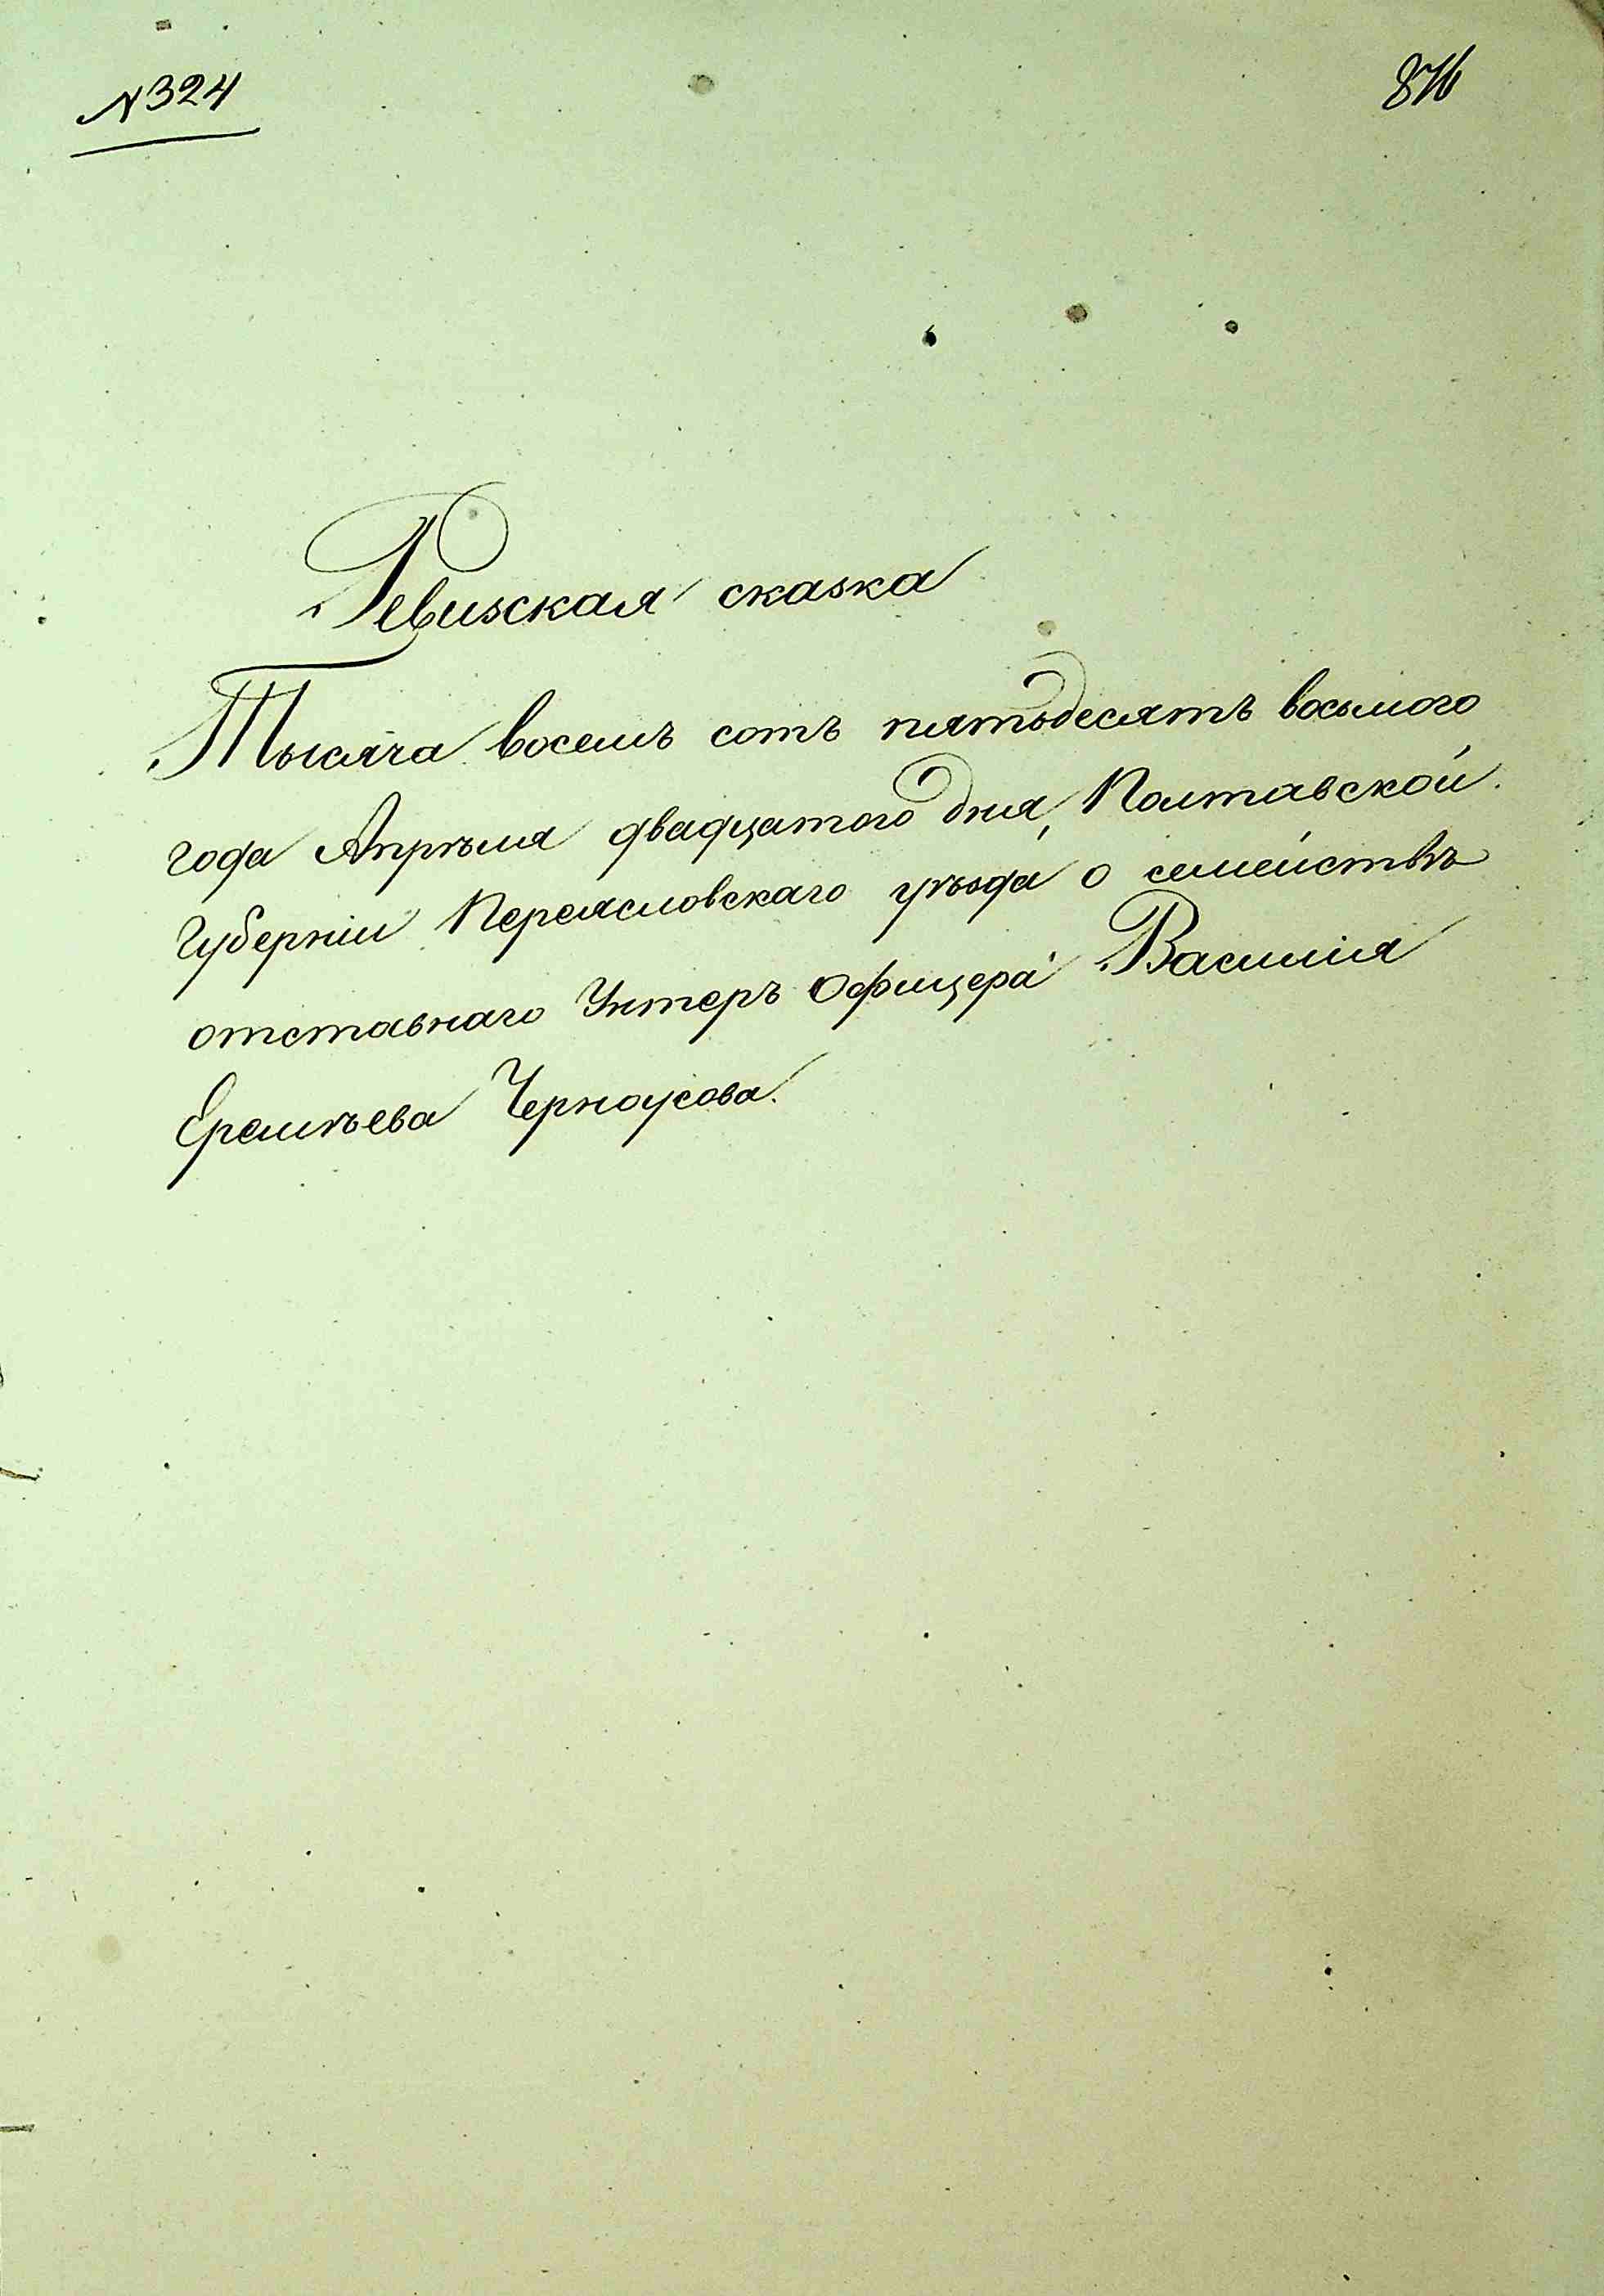 №324
876
Ревизская сказка
Тысяча восемъ сотъ пятьдесятъ восьмого
года Апрѣля двадцатого дня, Полтавской
Губерніи Переясловскаго уѣзда о семействѣ
отставнаго Унтеръ Офицера Василія
Еремѣева Черноусова.